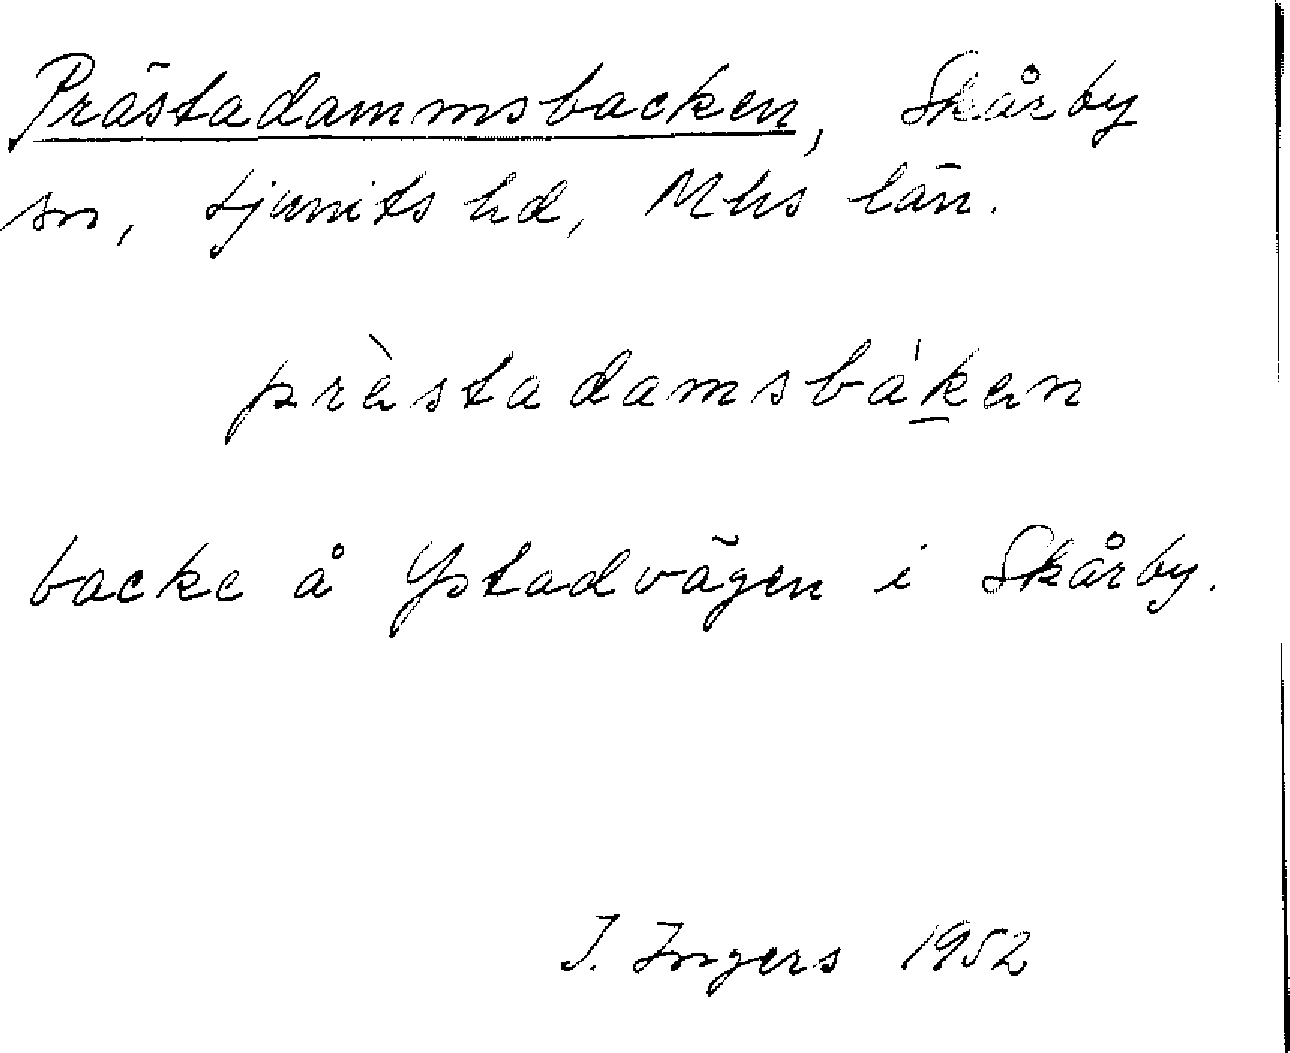 Prästadammsbacken, Skårby
sn, Ljunits hd, Mhs län.
prèstadamsbá'ḵen
backe å Ystadvägen i Skårby.
I. Ingers 1952